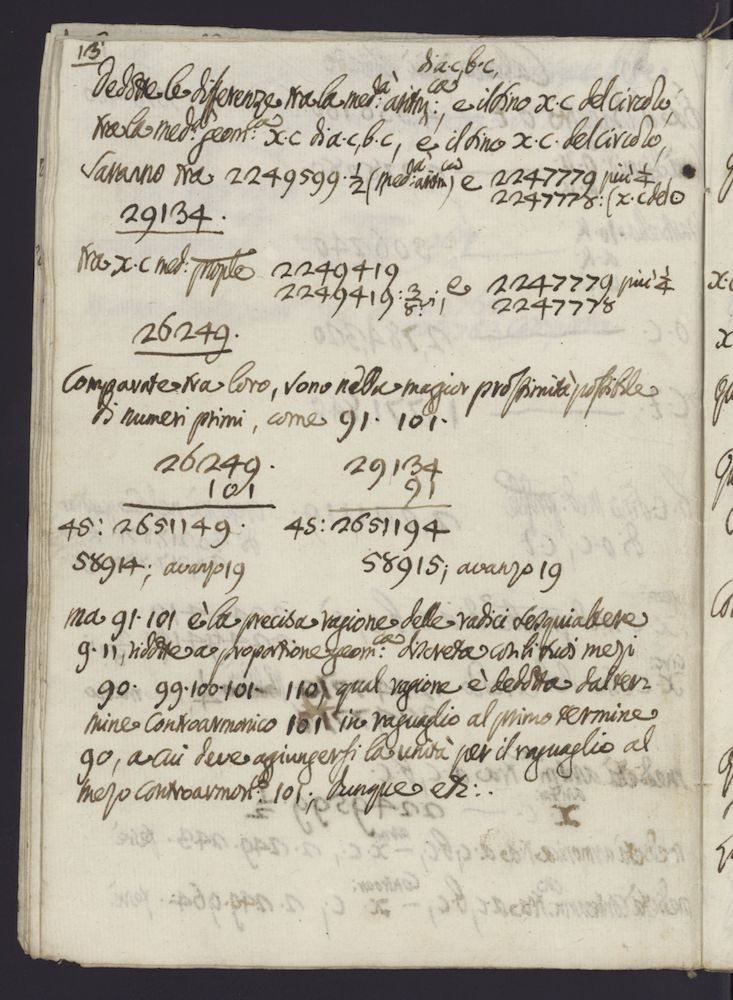 13
di a·c, b·c,
Dedotte le differenze tra la med:à aritm:ca, e il sino x·c del circolo,
tra la med:à geom:ca x·c di a·c, b·c, e il sino x·c· del circolo,
saranno tra 2249599·1/2 (med:à aritm:ca) e 2247779 più 1/4
2247778: (x·c del
29134·
tra x·c med: prople 2249419 e 2247779 più 1/4
2249419: 3/8 2247778
26249·
Comparate tra loro, sono nella maggior prossimità possibile
di numeri primi, come 91· 101·
26249· 29134
101 91
45: 2651149· 45: 2651194
58914; avanzo 19 58915; avanzo 19
ma 91·101 è la precisa ragione delle radici sesquialtere
9·11, ridotte a proportione geom:ca discreta con li suoi mezi
90· 99·100·101· 110; qual ragione è dedotta dal ter=
mine Controarmonico 101 in raguaglio al primo termine
90, a cui deve agiungersi la unità per il raguaglio al
mezo controarmon:co 101; dunque etc:·